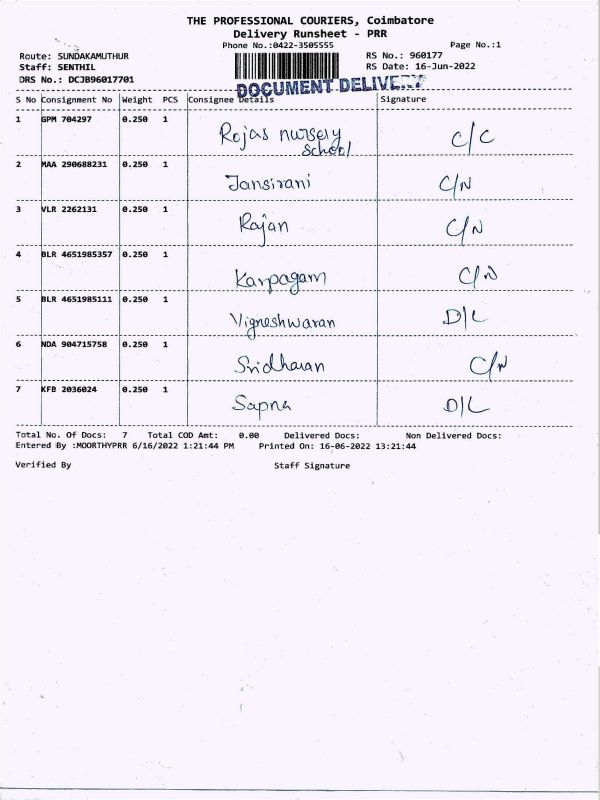 THE PROFESSIONAL COURIERS, Coimbatore
Delivery Runsheet - PRR
Phone No.:0422-3505555 Page No.:1
Route: SUNDAKAMUTHUR RS No.: 960177
Staff: SENTHIL RS Date: 16-Jun-2022
DRS No.: DCJB96017701
DOCUMENT DELIVERY
S No Consignment No Weight PCS Consignee Details Signature
1 GPM 704297 0.250 1 Rojas nursery school C/C
2 MAA 290688231 0.250 1 Jansirani C/N
3 VLR 2262131 0.250 1 Rajan C/N
4 BLR 4651985357 0.250 1 Karpagam C/N
5 BLR 4651985111 0.250 1 Vigneshwaran D/L
6 NDA 904715758 0.250 1 Sridharan C/N
7 KFB 2036024 0.250 1 Sapna D/L
Total No. Of Docs: 7 Total COD Amt: 0.00 Delivered Docs: Non Delivered Docs:
Entered By :MOORTHYPRR 6/16/2022 1:21:44 PM Printed On: 16-06-2022 13:21:44
Verified By Staff Signature